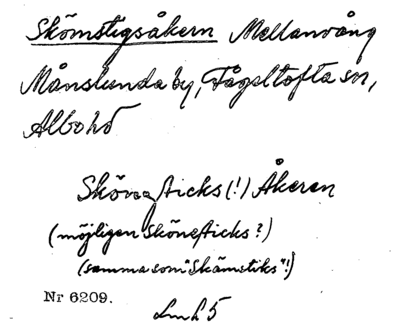 Skömstigsåkern Mellanvång
Månslunda by, Fågeltofta sn,
Albo hd
Sköveaficks (!) Åkeren
(möjligen Sköneficks?)
(samma som "Skämstiks"!)
Nr 6209.
LmL5